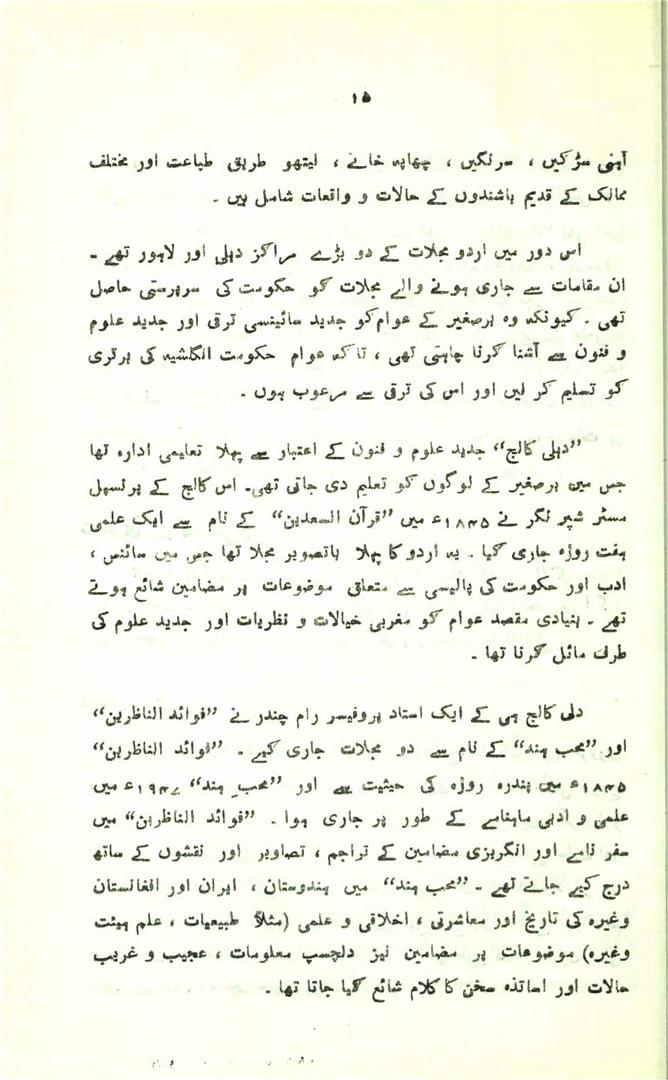 ۱۵
آہنی سڑکیں ، سرنگیں ، چھاپہ خانے ، لیتھو طریق طباعت اور مختلف
ممالک کے قدیم باشندوں کے حالات و واقعات شامل ہیں ۔
اس دور میں اردو مجلات کے دو بڑے مراکز دہلی اور لاہور تھے ۔
ان مقامات سے جاری ہونے والے مجلات کو حکومت کی سرپرستی حاصل
تھی ۔ کیونکہ وہ برصغیر کے عوام کو جدید سائینسی ترقی اور جدید علوم
و فنون سے آشنا کرنا چاہتی تھی ، تاکہ عوام حکومت انگلشیہ کی برتری
کو تسلیم کر لیں اور اس کی ترقی سے مرعوب ہوں ۔
”دہلی کالج“ جدید علوم و فنون کے اعتبار سے پہلا تعلیمی ادارہ تھا
جس میں برصغیر کے لوگوں کو تعلیم دی جاتی تھی۔ اس کالج کے پرنسپل
مسٹر شپر نگر نے ۱۸۴۵ء میں ”قرآن السعدین“ کے نام سے ایک علمی
ہفت روزہ جاری کیا ۔ یہ اردو کا پہلا باتصویر مجلا تھا جس میں سائنس ،
ادب اور حکومت کی پالیسی سے متعلق موضوعات پر مضامین شائع ہوتے
تھے ۔ بنیادی مقصد عوام کو مغربی خیالات و نظریات اور جدید علوم کی
طرف مائل کرنا تھا ۔
دلی کالج ہی کے ایک استاد پروفیسر رام چندر نے ”فوائد الناظرین“
اور ”محب ہند“ کے نام سے دو مجلات جاری کیے ۔ ”فوائد الناظرین“
۱۸۴۵ء میں پندرہ روزہ کی حیثیت سے اور ”محبِ ہند“ ۱۹۴۷ء میں
علمی و ادبی ماہنامے کے طور پر جاری ہوا ۔ ”فوائد الناظرین“ میں
سفر نامے اور انگریزی مضامین کے تراجم ، تصاویر اور نقشوں کے ساتھ
درج کیے جاتے تھے ۔ ”محب ہند“ میں ہندوستان ، ایران اور افغانستان
وغیرہ کی تاریخ اور معاشرتی ، اخلاقی و علمی (مثلاً طبیعیات ، علم ہیئت
وغیرہ) موضوعات پر مضامین نیز دلچسپ معلومات ، عجیب و غریب
حالات اور اساتذہ سخن کا کلام شائع کیا جاتا تھا ۔